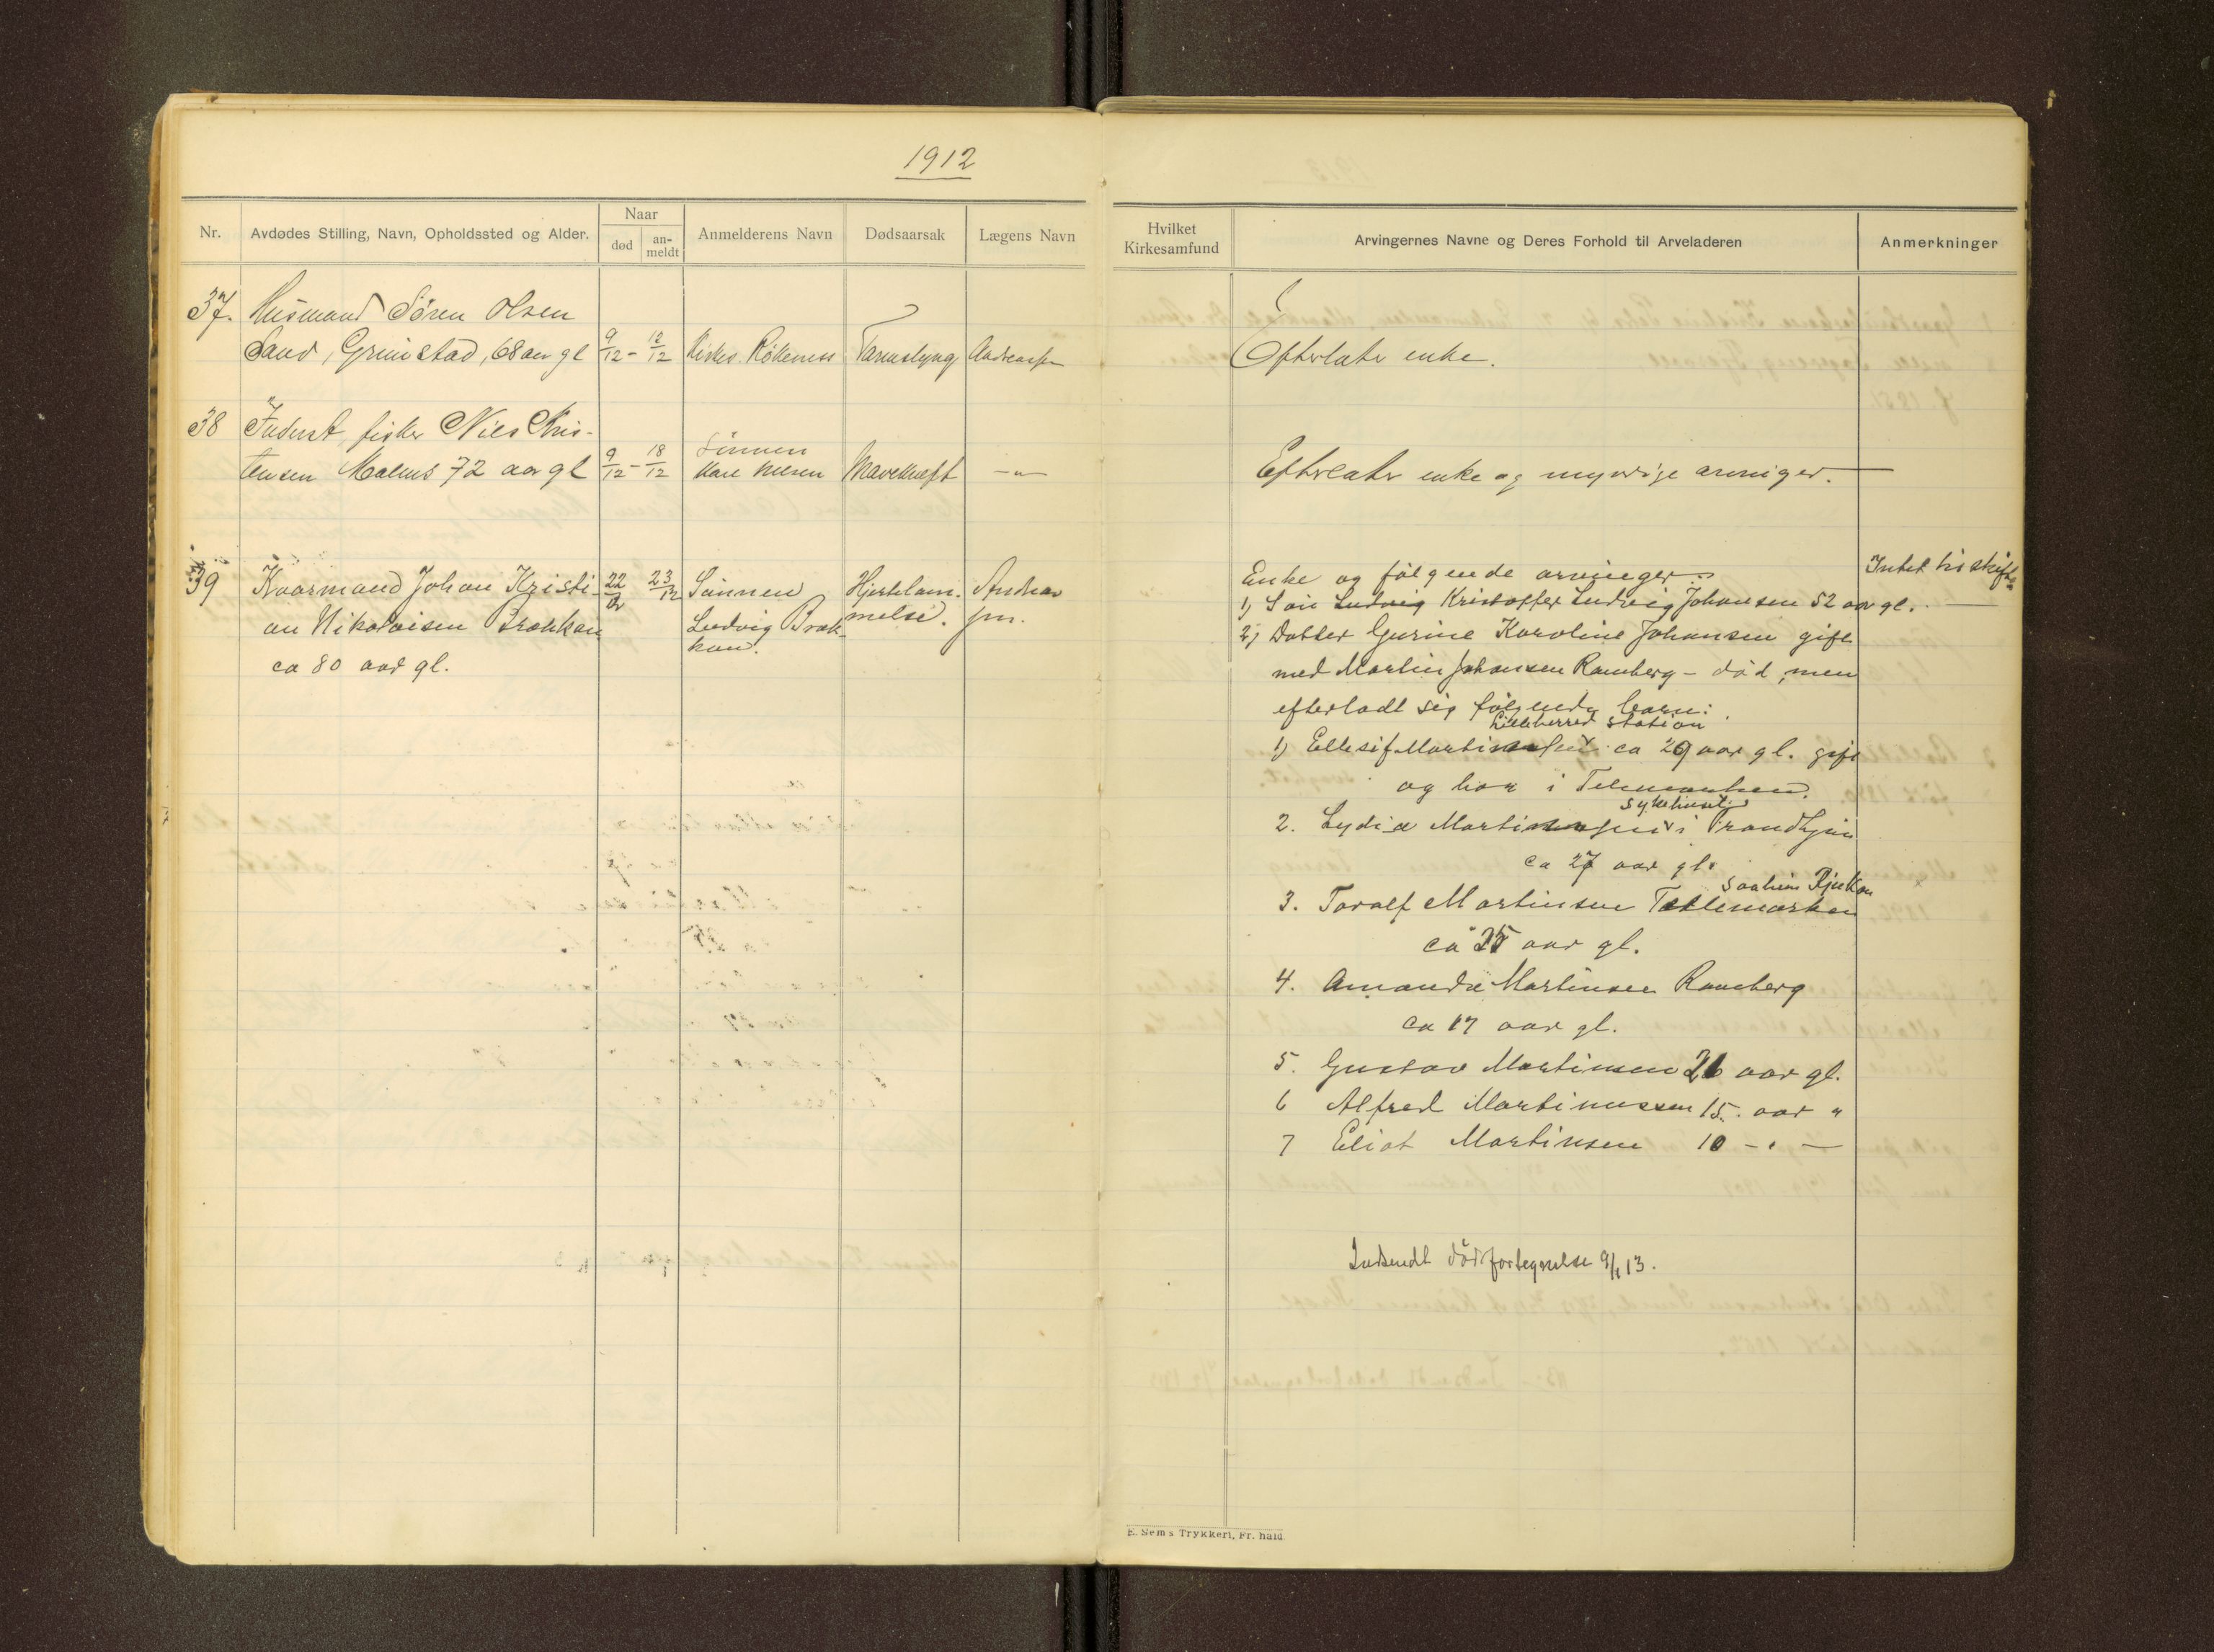 1912
Nr.
Avdødes Stilling, Navn, Opholdssted og Alder.
Naar
død
an-
meldt
Anmelderens Navn
Dødsaarsak
Lægens Navn
Hvilket
Kirkesamfund
Arvingernes Navne og Deres Forhold til Arveladeren
Anmerkninger
37. Husmand Søren Olsen
Sand, Grimstad, 68 aar gl 9/12 - 12/12 Kirkes. Rökeness Tarmslyng Andreassen
Efterlater enke.
38 Inderst, fisker Nils Kris-
tensen Malnes 72 aar gl 9/12 - 18/12 Sönnen
Kræft -"-
Efterlater enke og myndige arvinger.
39 Kaarmand Johan Kristi-
an Nikolaisen Brokkan
ca 80 aar gl.
22/12 23/12
Sönnen
Ludvig Brok-
kan.
Hjertelam-
melse.
Andreas
sen.
Enke og følgende arvinger:
Intet til skifte
1) Sön Ludvig Kristoffer Ludvig Johansen 52 aar gl.
2) Datter Gurine Karoline Johansen gift
med Martin Johansen Ramberg - död, men
efterladt sig følgende barn:
Lilleherred station
1) Ellesif Martinsen ca 29 aar gl. gift
og bor i Telemarken.
Sykehuset
2. Lydia Martinsen i Trondhjem
ca 27 aar gl.
Saaheim Rjukan
3. Toralf Martinsen Tellemarken
ca 25 aar gl.
4. Amanda Martinsen Ramberg
ca 17 aar gl.
5. Gustav Martinsen 21 aar gl.
6 Alfred Martinussen 15. aar "
7 Eliot Martinsen 10 - " -
Indsendt dödsfortegnelse 9/1 13.
E. Sem's Trykkeri, Fr. hald